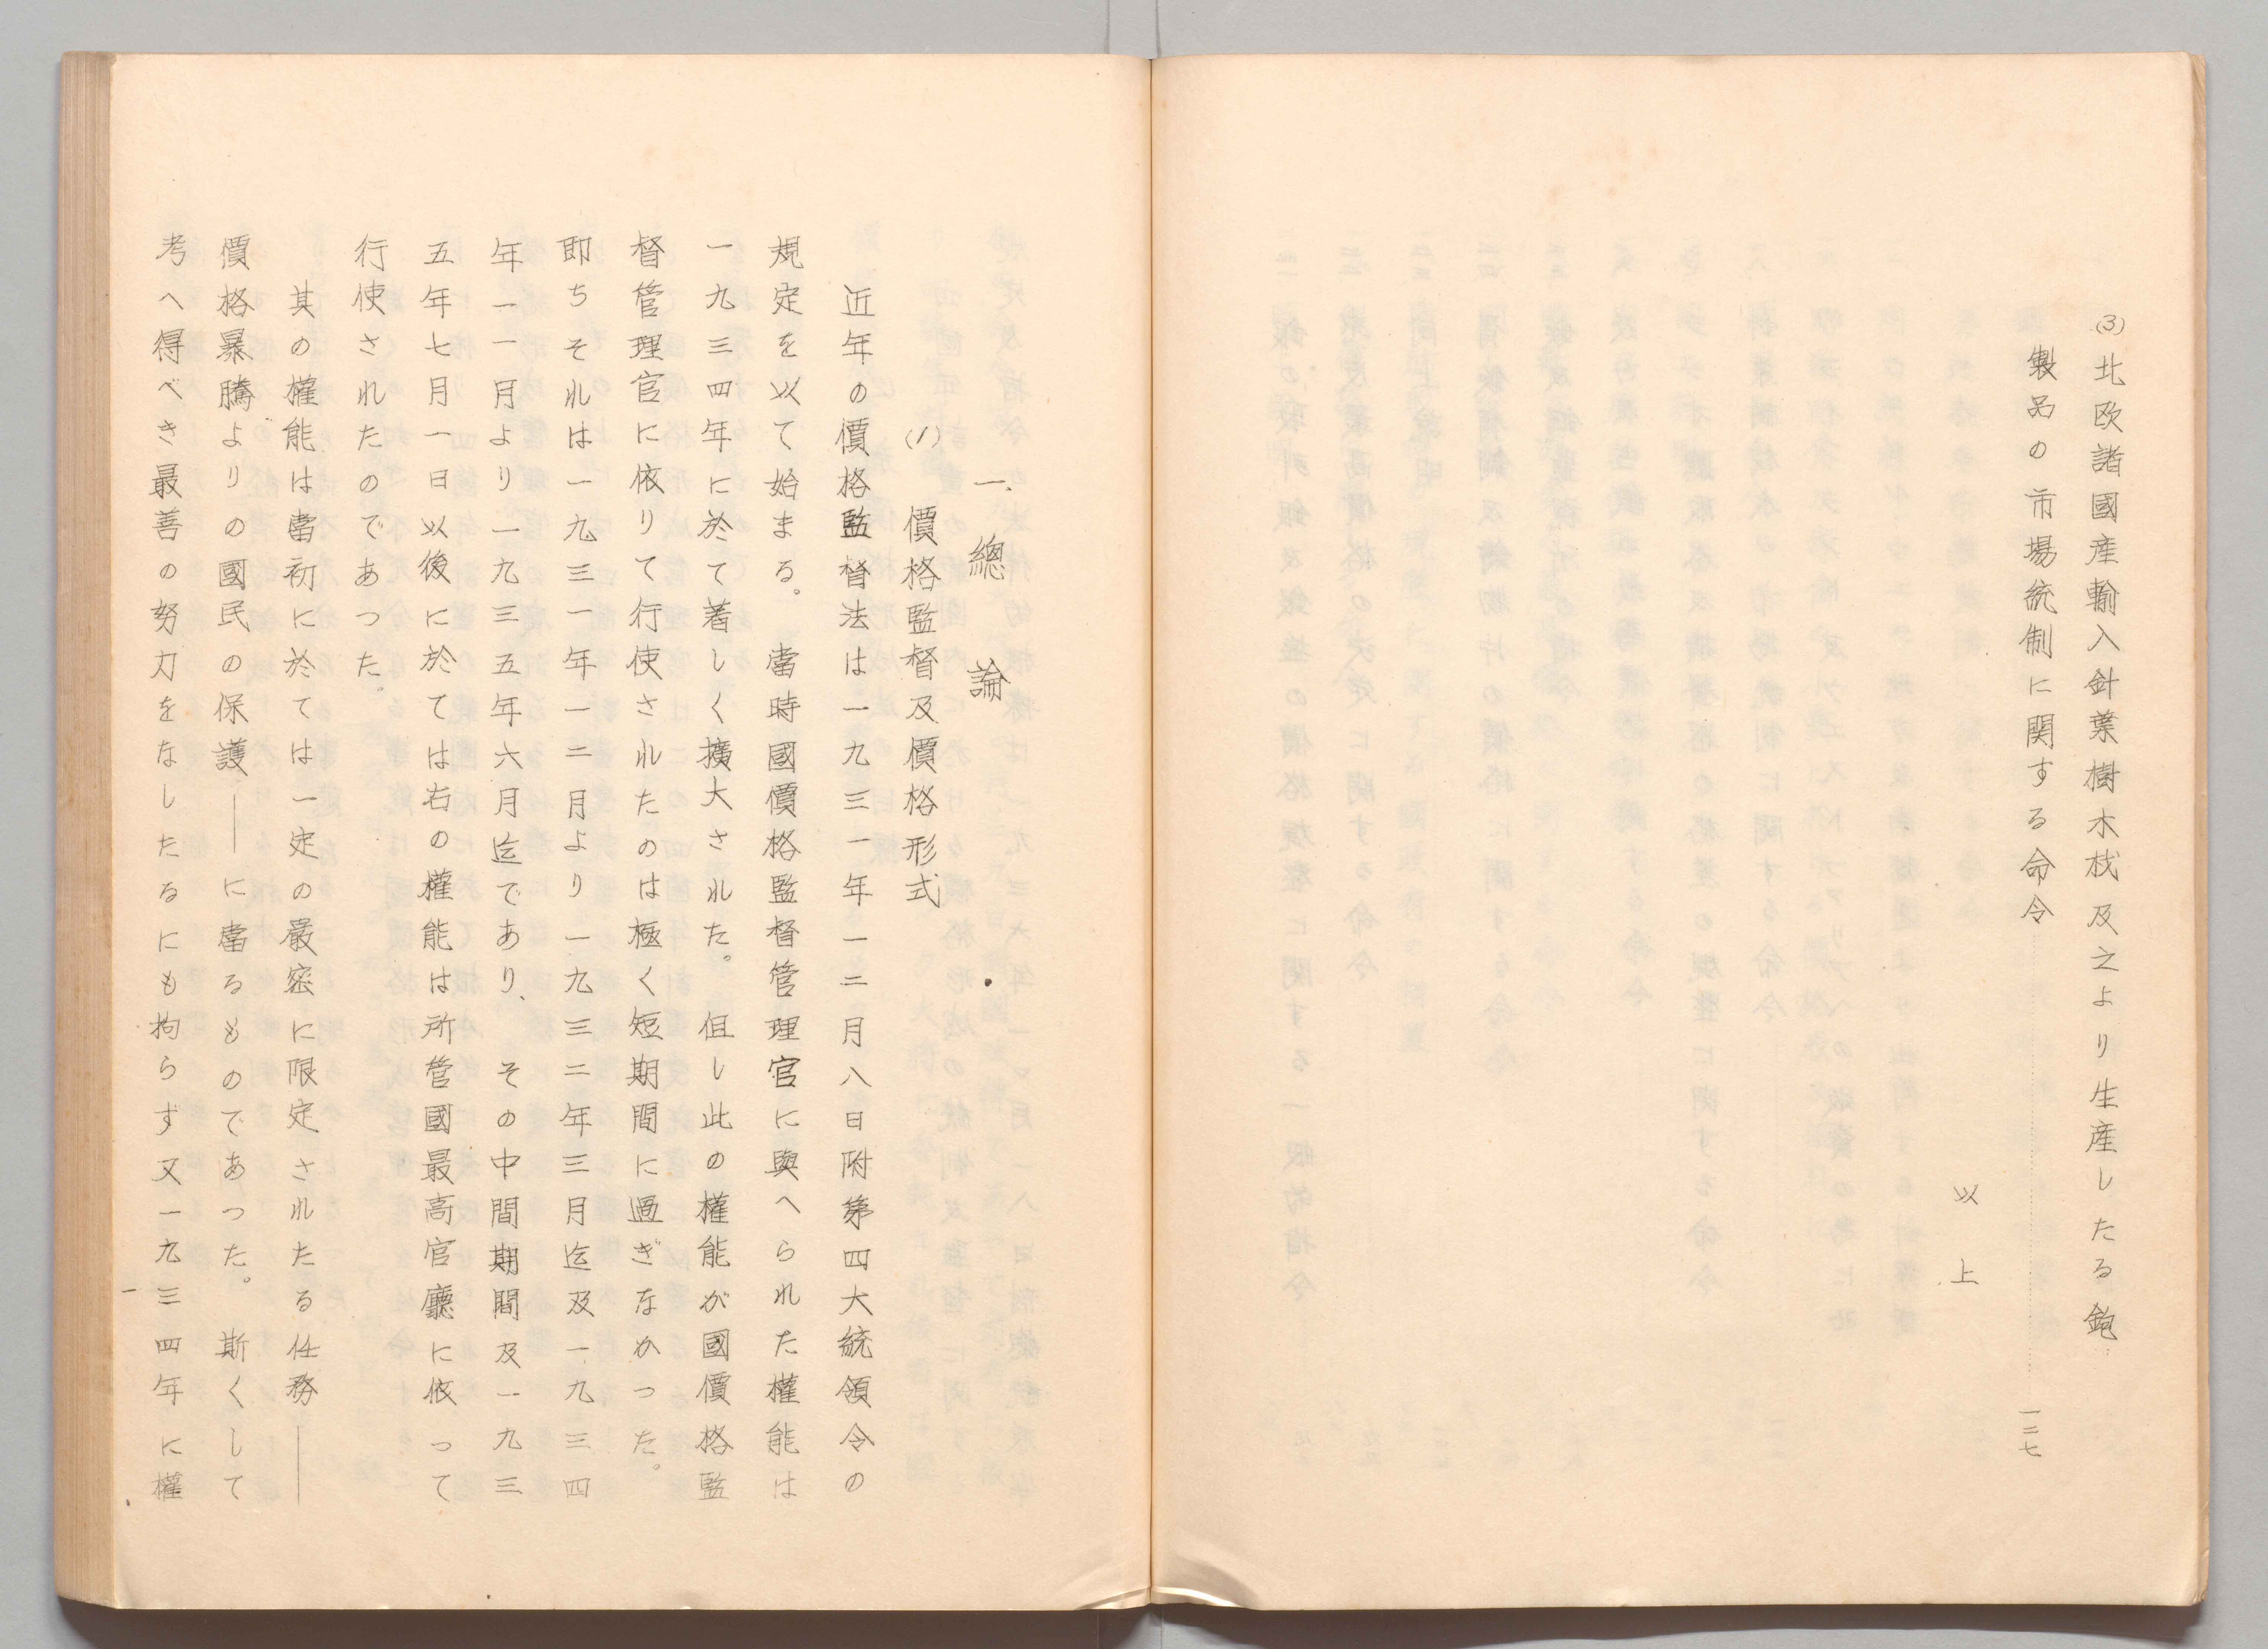 (3) 北欧諸國産輸入針葉樹木材及之より生産したる鉋
製品の市場統制に関する命令……一二七
以上
一、總論
(1) 價格監督及價格形式
近年の價格監督法は一九三一年一二月八日附第四大統領令の
規定を以て始まる。當時國價格監督管理官に與へられた權能は
一九三四年に於て着しく擴大された。但し此の權能が國價格監
督管理官に依りて行使されたのは極く短期間に過ぎなかった。
即ちそれは一九三一年一二月より一九三二年三月迄及一九三四
年一一月より一九三五年六月迄であり、その中間期間及一九三
五年七月一日以後に於ては右の權能は所管國最高官廳に依って
行使されたのであつた。
其の權能は當初に於ては一定の嚴密に限定されたる任務――
價格暴騰よりの國民の保護――に當るものであつた。斯くして
考へ得べき最善の努力をなしたるにも拘らず又一九三四年に權
一